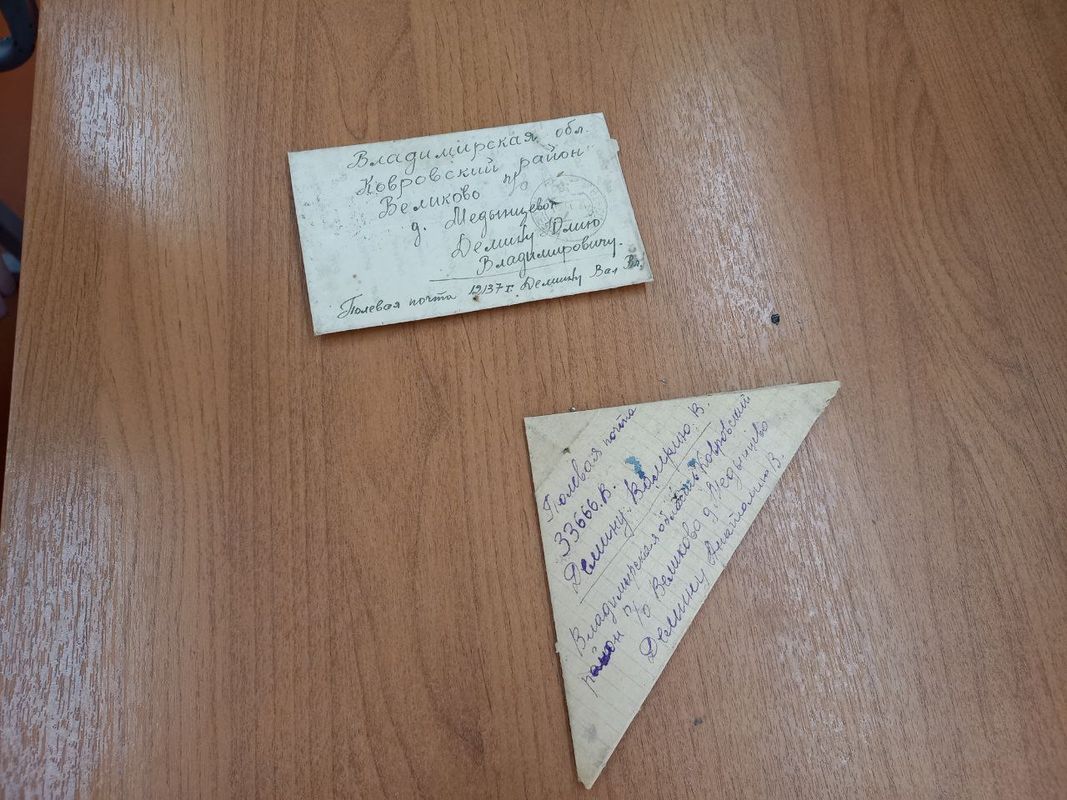 Владимирская обл.
Ковровский район
Великово п/о
д. Медынцево
Демину Юлию
Владимировичу.
Полевая почта 12137 г. Демину Вал Вл.
Полевая почта
33666.В.
Демину Валерию В.
Владимирская область Ковровский
район п/о Великово д Медынцево
Демину Анатолию В.